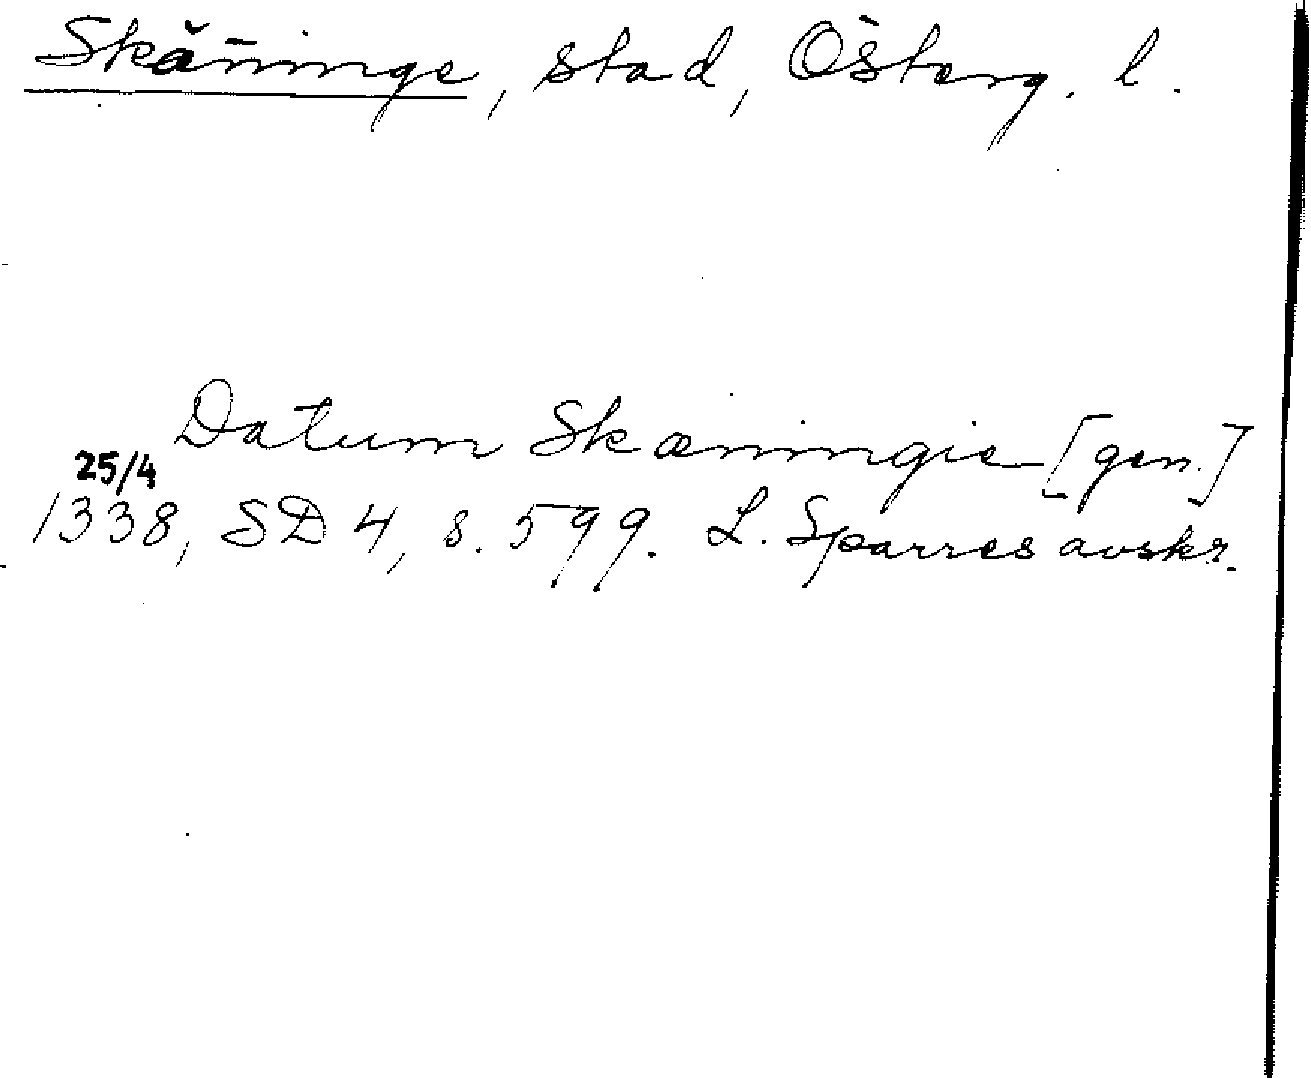 Skänninge, stad, Österg. l.
Datum Skæningie [gen.]
25/4
1338, SD 4, s. 599. L. Sparres avskr.